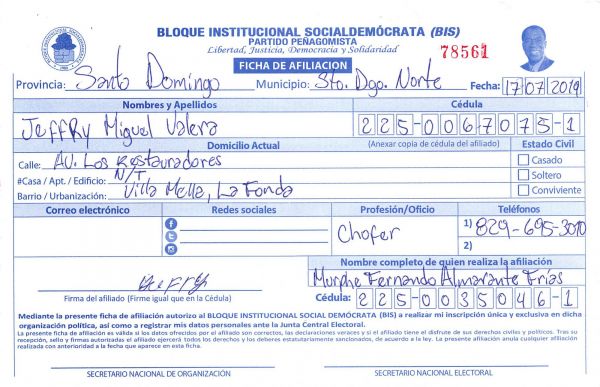 BLOQUE INSTITUCIONAL SOCIALDEMÓCRATA (BIS)
PARTIDO PEÑAGOMISTA
Libertad, Justicia, Democracia y Solidaridad
78561
FICHA DE AFILIACIÓN
Provincia: Santo Domingo Municipio: Sto. Dgo. Norte Fecha: 17 07 2019
Nombres y Apellidos Cédula
Jeffry Miguel Valera 225-0067075-1
Domicilio Actual (Anexar copia de cédula del afiliado) Estado Civil
Calle: AV. Los Restauradores Casado
#Casa / Apt. / Edificio: N/T Soltero
Barrio / Urbanización: Villa Mella, La Fonda Conviviente
Correo electrónico Redes sociales Profesión/Oficio Teléfonos
Chofer 1) 829-695-3010
2)
Nombre completo de quien realiza la afiliación
Jeffry Murphe Fernando Almarante Frías
Firma del afiliado (Firme igual que en la Cédula) Cédula: 225-0035046-1
Mediante la presente ficha de afiliación autorizo al BLOQUE INSTITUCIONAL SOCIAL DEMÓCRATA (BIS) a realizar mi inscripción única y exclusiva en dicha
organización política, así como a registrar mis datos personales ante la Junta Central Electoral.
La presente ficha de afiliación es válida si los datos ofrecidos por el afiliado son correctos, las declaraciones veraces y si el afiliado tiene el disfrute de sus derechos civiles y políticos. Tras su
recepción, sello y firmas autorizadas el afiliado ejercerá todos los derechos y los deberes estatutariamente sancionados, de acuerdo a la ley. La presente afiliación anula cualquier afiliación
realizada con anterioridad a la fecha que aparece en esta ficha.
SECRETARIO NACIONAL DE ORGANIZACIÓN SECRETARIO NACIONAL ELECTORAL